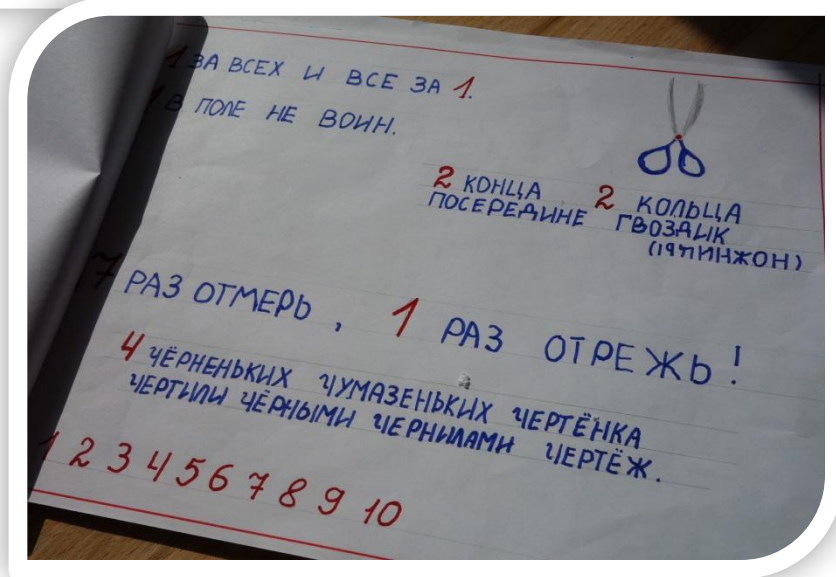 1 ЗА ВСЕХ И ВСЕ ЗА 1.
1 В ПОЛЕ НЕ ВОИН.
2 КОНЦА 2 КОЛЬЦА
ПОСЕРЕДИНЕ ГВОЗДИК
7 РАЗ ОТМЕРЬ, 1 РАЗ ОТРЕЖЬ!
4 ЧЁРНЕНЬКИХ ЧУМАЗЕНЬКИХ ЧЕРТЁНКА
ЧЕРТИЛИ ЧЁРНЫМИ ЧЕРНИЛАМИ ЧЕРТЁЖ.
1 2 3 4 5 6 7 8 9 10